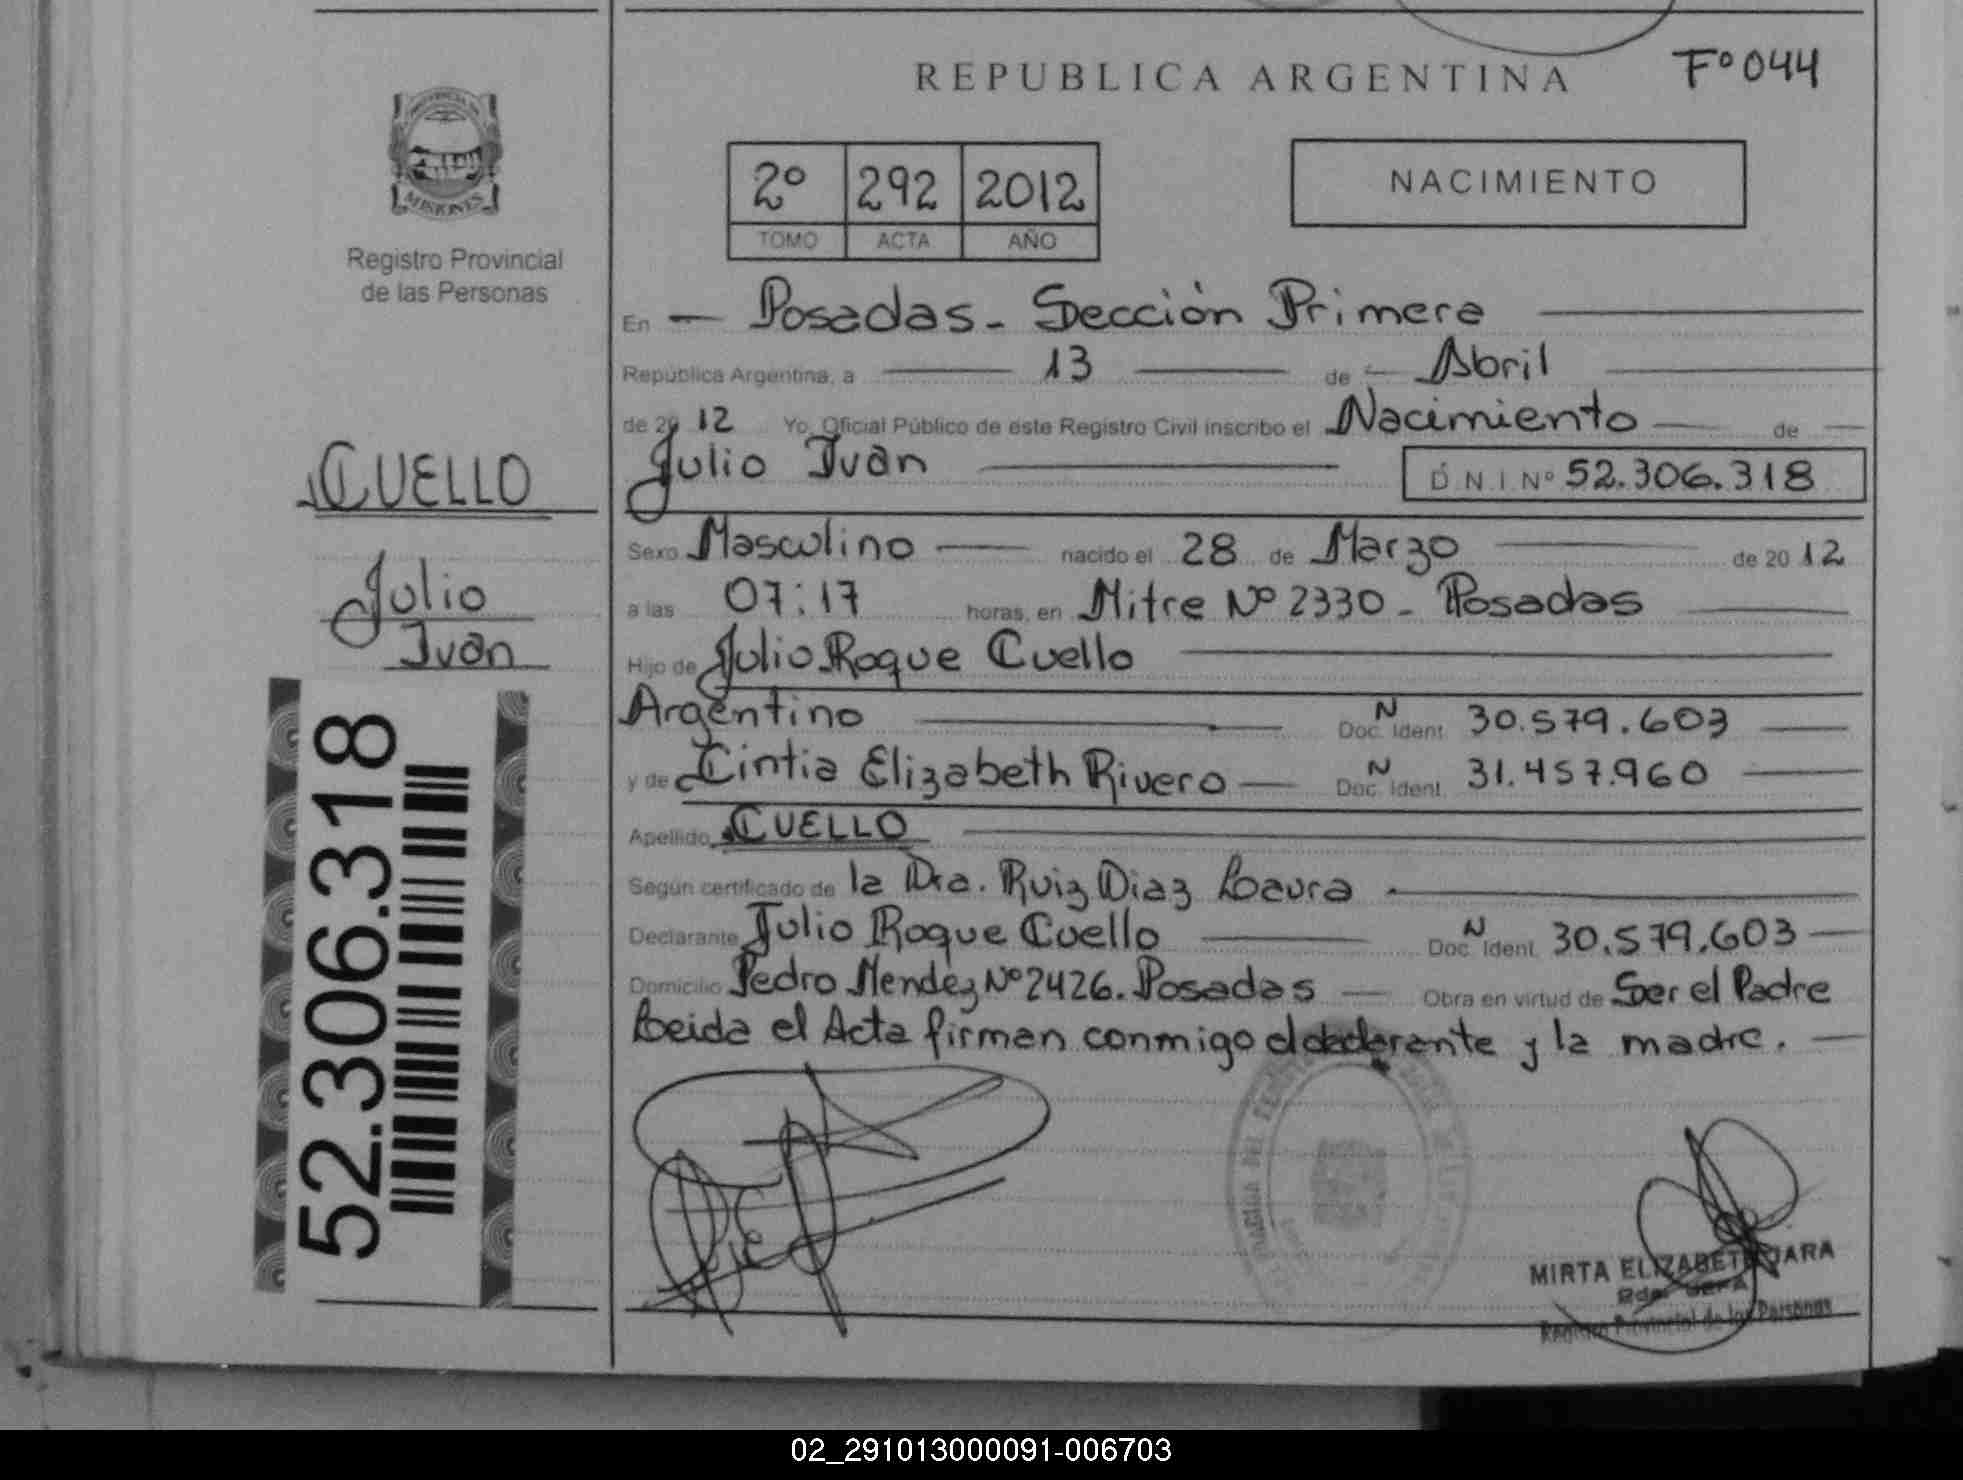 REPUBLICA ARGENTINA
Fº 044
PROVINCIA DE
MISIONES
Registro Provincial
de las Personas
2º 292 2012
TOMO ACTA AÑO
NACIMIENTO
En — Posadas - Sección Primera
República Argentina, a 13 de Abril
de 2012 Yo, Oficial Público de este Registro Civil inscribo el Nacimiento de
Julio Iván
D.N.I. Nº 52.306.318
CUELLO
Julio
Iván
Sexo Masculino nacido el 28 de Marzo de 2012
a las 07:17 horas, en Mitre Nº 2330 - Posadas
Hijo de Julio Roque Cuello
Argentino Doc. Ident. N 30.579.603
y de Cintia Elizabeth Rivero Doc. Ident. N 31.457.960
Apellido CUELLO
Según certificado de la Dra. Ruiz Diaz Laura
Declarante Julio Roque Cuello Doc. Ident. N 30.579.603
Domicilio Pedro Mendez Nº 2426. Posadas — Obra en virtud de Ser el Padre
Leida el Acta firman conmigo el declarante y la madre.
52.306.318
MIRTA ELIZABETH JARA
Registro Provincial de las Personas
02_291013000091-006703